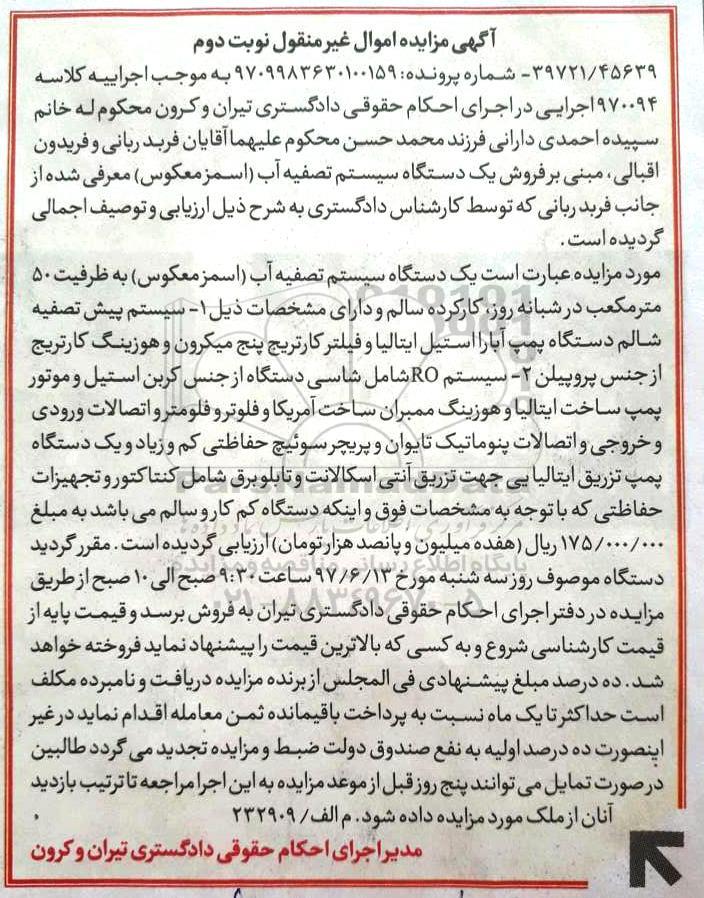 آگهی مزایده اموال غیر منقول نوبت دوم
۳۹۷۲۱/۴۵۶۳۹- شماره پرونده: ۹۷۰۹۹۸۳۶۳۰۱۰۰۱۵۹ به موجب اجراییه کلاسه
۹۷۰۰۹۴ اجرایی در اجرای احکام حقوقی دادگستری تیران و کرون محکوم له خانم
سپیده احمدی دارانی فرزند محمد حسن محکوم علیهما آقایان فربد ربانی و فریدون
اقبالی، مبنی بر فروش یک دستگاه سیستم تصفیه آب (اسمز معکوس) معرفی شده از
جانب فربد ربانی که توسط کارشناس دادگستری به شرح ذیل ارزیابی و توصیف اجمالی
گردیده است.
مورد مزایده عبارت است یک دستگاه سیستم تصفیه آب (اسمز معکوس) به ظرفیت ۵۰
مترمکعب در شبانه روز، کارکرده سالم و دارای مشخصات ذیل ۱- سیستم پیش تصفیه
شالم دستگاه پمپ آبارا استیل ایتالیا و فیلتر کارتریج پنج میکرون و هوزینگ کارتریج
از جنس پروپیلن ۲- سیستم RO شامل شاسی دستگاه از جنس کربن استیل و موتور
پمپ ساخت ایتالیا و هوزینگ ممبران ساخت آمریکا و فلوتر و فلومتر و اتصالات ورودی
و خروجی و اتصالات پنوماتیک تایوان و پریچر سوئیچ حفاظتی کم و زیاد و یک دستگاه
پمپ تزریق ایتالیا یی جهت تزریق آنتی اسکالانت و تابلو برق شامل کنتاکتور و تجهیزات
حفاظتی که با توجه به مشخصات فوق و اینکه دستگاه کم کار و سالم می باشد به مبلغ
۱۷۵/۰۰۰/۰۰۰ ریال (هفده میلیون و پانصد هزار تومان) ارزیابی گردیده است. مقرر گردید
دستگاه موصوف روز سه شنبه مورخ ۹۷/۶/۱۳ ساعت ۹:۳۰ صبح الی ۱۰ صبح از طریق
مزایده در دفتر اجرای احکام حقوقی دادگستری تیران به فروش برسد و قیمت پایه از
قیمت کارشناسی شروع و به کسی که بالاترین قیمت را پیشنهاد نماید فروخته خواهد
شد. ده درصد مبلغ پیشنهادی فی المجلس از برنده مزایده دریافت و نامبرده مکلف
است حداکثر تا یک ماه نسبت به پرداخت باقیمانده ثمن معامله اقدام نماید در غیر
اینصورت ده درصد اولیه به نفع صندوق دولت ضبط و مزایده تجدید می گردد طالبین
در صورت تمایل می توانند پنج روز قبل از موعد مزایده به این اجرا مراجعه تا ترتیب بازدید
آنان از ملک مورد مزایده داده شود. م الف/ ۲۳۲۹۰۹
مدیر اجرای احکام حقوقی دادگستری تیران و کرون